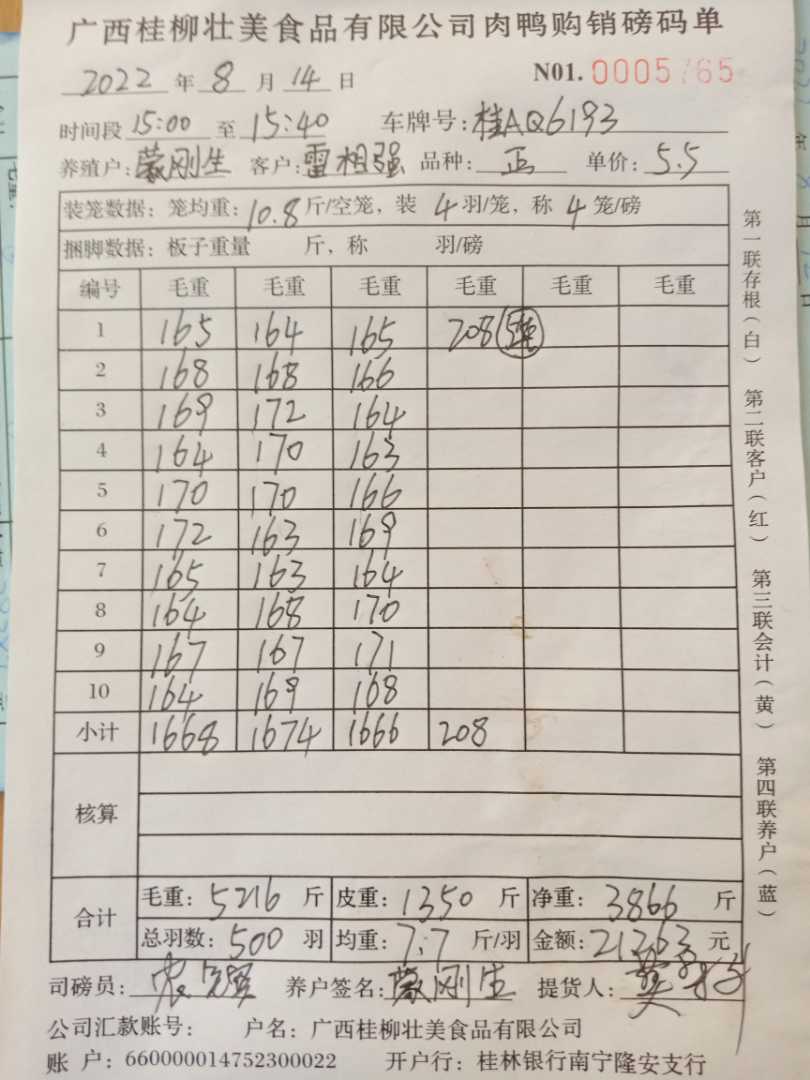 广西桂柳壮美食品有限公司肉鸭购销磅码单
2022 年 8 月 14 日 N01. 0005765
时间段 15:00 至 15:40 车牌号: 桂AQ6193
养殖户: 蒙刚生 客户: 雷相强 品种: 正 单价: 5.5
装笼数据: 笼均重: 10.8 斤/空笼, 装 4 羽/笼, 称 4 笼/磅
捆脚数据: 板子重量 斤, 称 羽/磅
编号 毛重 毛重 毛重 毛重 毛重 毛重
1 165 164 165 208
2 168 168 166
3 169 172 164
4 164 170 163
5 170 170 166
6 172 163 169
7 165 163 164
8 164 168 170
9 167 167 171
10 164 169 168
小计 1668 1674 1666 208
核算
合计 毛重: 5216 斤 皮重: 1350 斤 净重: 3866 斤
总羽数: 500 羽 均重: 7.7 斤/羽 金额: 21263 元
司磅员: 养户签名: 蒙刚生 提货人:
公司汇款账号: 户名: 广西桂柳壮美食品有限公司
账 户: 660000014752300022 开户行: 桂林银行南宁隆安支行
第一联存根(白) 第二联客户(红) 第三联会计(黄) 第四联养户(蓝)